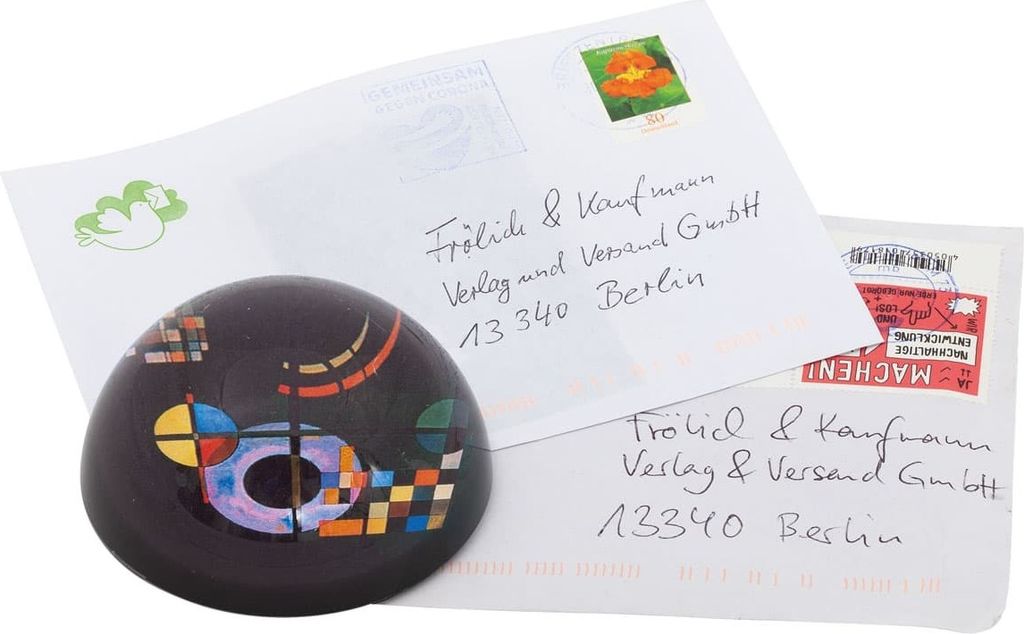 GEMEINSAM
GEGEN CORONA
80
Deutschland
Frölich & Kaufmann
Verlag und Versand GmbH
13 340 Berlin
ERDE NUR GEBORGT
WIR
UND
LOS!
NACHHALTIGE
ENTWICKLUNG
JA
MACHEN!
Frölich & Kaufmann
Verlag & Versand GmbH
13340 Berlin